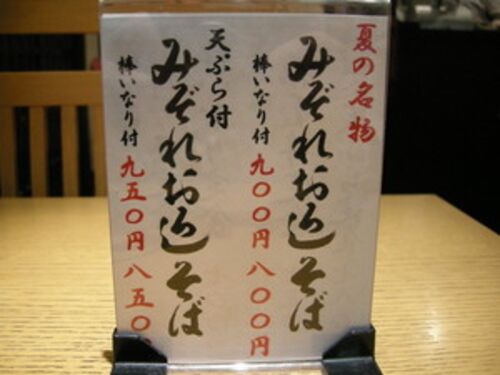 夏の名物
みぞれおろしそば
八〇〇円
棒いなり付 九〇〇円
天ぷら付
みぞれおろしそば
八五〇
棒いなり付 九五〇円